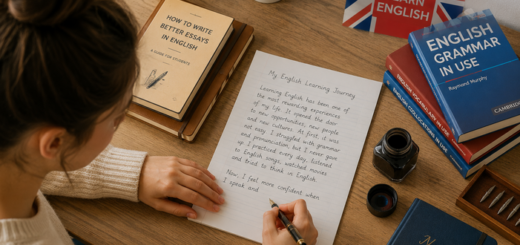 HOW TO WRITE
BETTER ESSAYS
IN ENGLISH
A GUIDE FOR STUDENTS
LEARN
ENGLISH
My English Learning Journey
Learning English has been one
of the most rewarding experiences
of my life. It opened the door
to new opportunities, new people
and new cultures. At first, it was
not easy. I struggled with grammar
and pronunciation, but I never gave
up. I practiced every day, listened
to English songs, watched movies
and tried to think in English.
Now, I feel more confident when
I speak and
ENGLISH
GRAMMAR
IN USE
Raymond Murphy
CAMBRIDGE
ENGLISH VOCABULARY IN USE
ENGLISH COLLOCATIONS IN USE